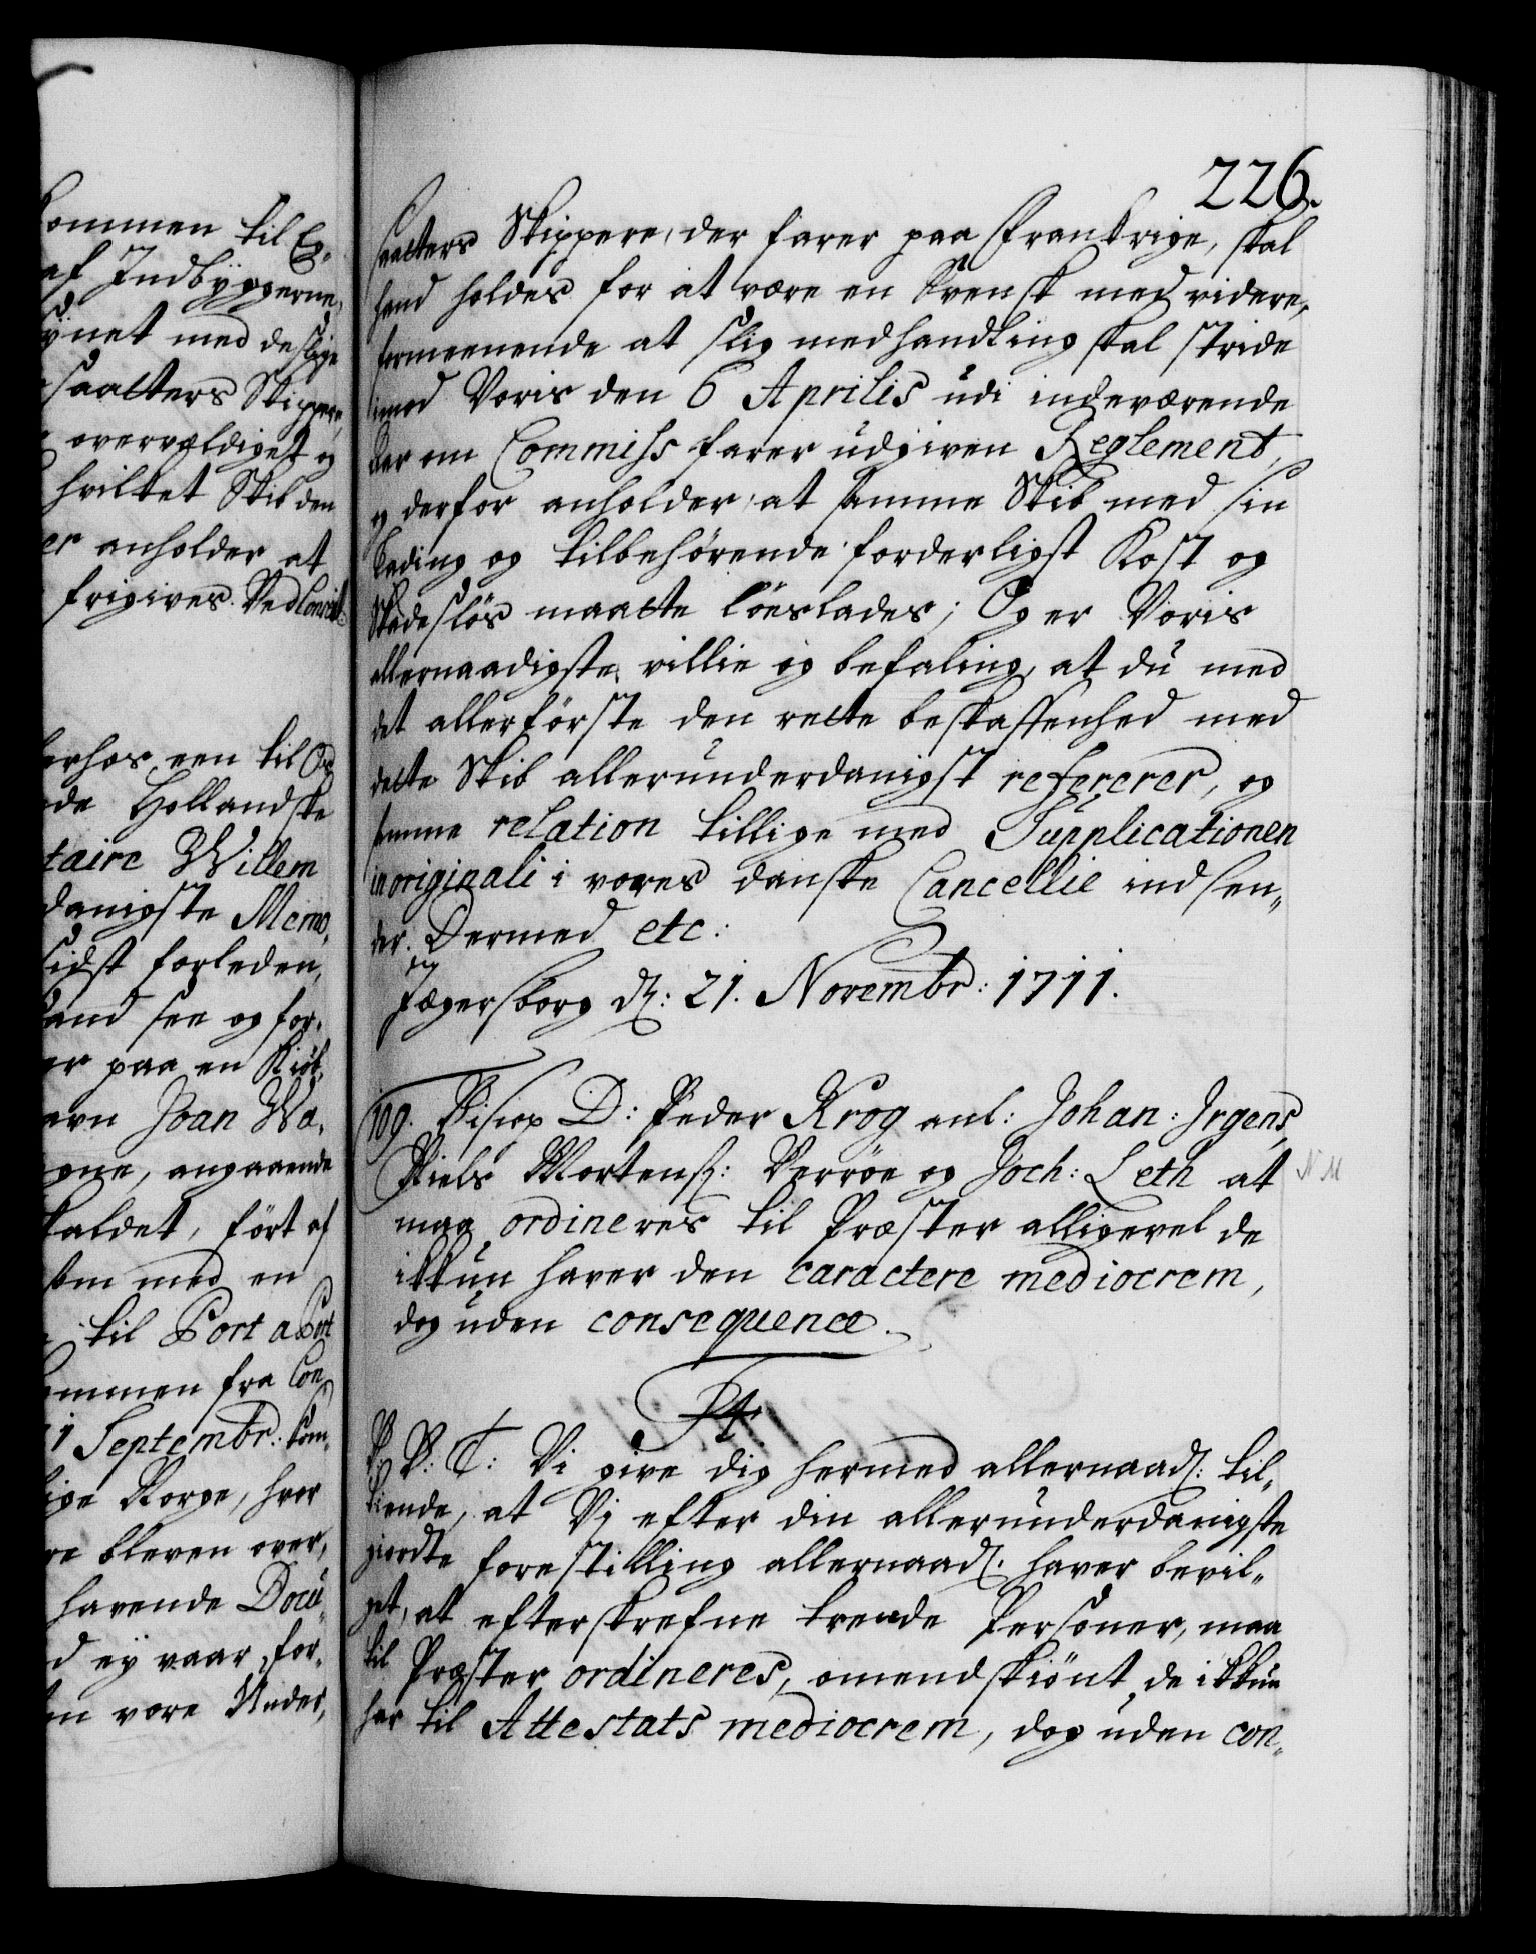 ommen til Ex-
af Indbÿggerne,
ÿnet med deslige
saatters Skippere,
overvældiget og
hvilket Skib den
er anholder at
frigives. Ved Convict:
erhos een til Os
de Hollandske
taire Willem
danigste Memo,
sidst forleden,
and see og for,
er paa en Kiöb,
avn Joan Wa,
gne, angaaende
kaldet, fört af
som med en
til Port a Port
ommen fra Con
1 Septembr: kom,
ige Norge, hvor
re bleven over,
havende Docu,
d eÿ vaar for,
m vore Under,
226.
saatters Skippere, der farer paa Frankrige, skal
hand holdes for at være en Svensk med videre,
formeenende at slig medhandling skal stride
imod Voris den 6 Aprilis udi indeværende
Aar om Commissfarer udgiven Reglement,
og derfor anholder, at samme Skib med sin
Lading og tilbehørende forderligst Kost og
Skadeslös maatte löeslades; Og er Voris
allernaadigste villie og befaling, at du med
det allerförste den rette beskaffenhed med
dette Skib allerunderdanigst refererer, og
samme relation tillige med Supplicationen
in originali i vores danske Cancellie indsen,,
der. Dermed etc:
Jægersborg d: 21. Novembr: 1711.
109. Bisiop D: Peder Krog anl: Johan: Irgens,
Niels Mortens: Verröe og Joch: Leth at
maa ordineres til Præster alligevel de
ikkun haver den caractere mediocrem,
dog uden consequence.
F4.
P: V: T: Vi give dig hermed allernaad: til,,
kiende, at Vi efter din allerunderdanigste
giordte forestilling allernaad: haver bevil,,
get, at efterskrefne trende Personer, maa
til Præster ordineres, omendskiönt de ikkun
har til Attestats mediocrem, dog uden con,,